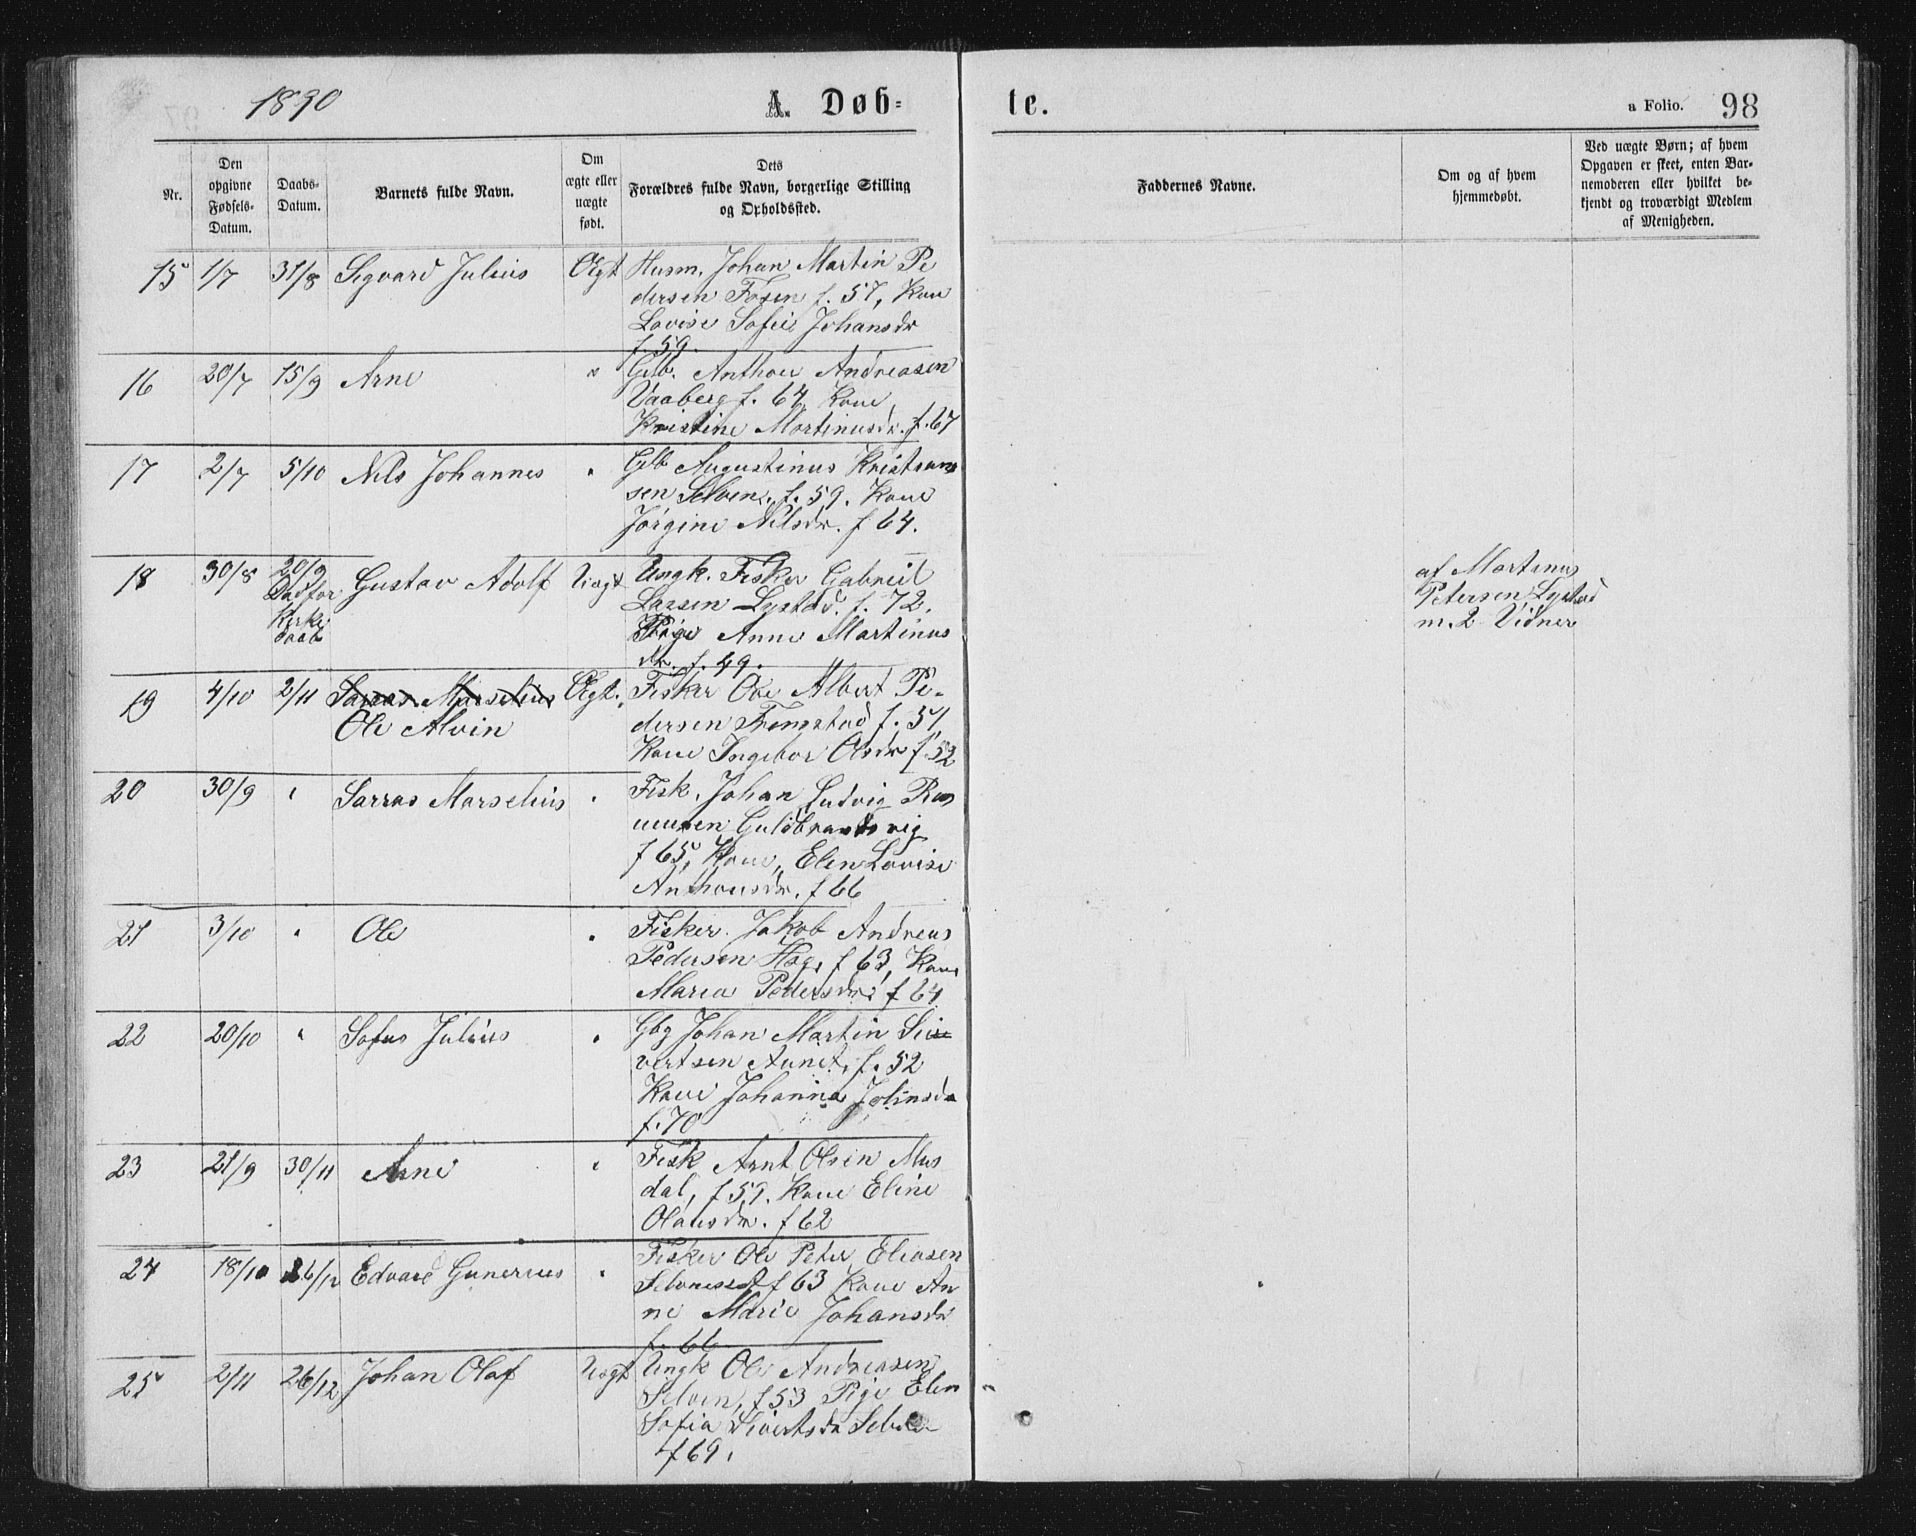 1890 A. Døb= te. a Folio. 98
Nr.
Den opgivne Fødsels-Datum.
Daabs-Datum.
Barnets fulde Navn.
Om ægte eller uægte født.
Dets Forældres fulde Navn, borgerlige Stilling og Opholdssted.
Faddernes Navne.
Om og af hvem hjemmedøbt.
Ved uægte Børn; af hvem Opgaven er skeet, enten Barnemoderen eller hvilket bekjendt og troværdigt Medlem af Menigheden.
15 1/7 31/8 Sigvard Julius Ægt Husm. Johan Martin Pe
dersen Fosen f. 57, Kone
Lovise Sofie Johansdr
f. 59.
16 20/7 15/9 Arne " Gdb. Anthon Andreasen
Vaaberg f. 64, Kone
Kristine Martinusdr. f. 67
17 2/7 5/10 Nils Johannes " Gdb Augustinus Kristian
sen Selven, f. 59. Kone
Jørgine Nilsdr. f 64.
18 30/8 20/9 Gustav Adolf Uægt Ungk. Fisker Gabriel
Larsen Lystad. f. 72.
Pige Anne Martinus
dr. f. 49.
Kirke
daab
af Martinus
Petersen Lystad
m. 2 Vidner
19 4/10 2/11 Sarras Marselius Ægt. Fisker Ole Albert Pe-
Ole Alvin dersen Fremstad f. 51,
Kone Ingebor Olsdr f. 52
20 30/9 " Sarras Marselius " Fisk. Johan Ludvig Ras
mussen Guldbrandsvig
f 65, Kone, Elen Lovise
Anthonsdr. f 66
21 3/10 " Ole " Fisker Jakob Andreas
Pedersen Hog, f 63, Kone
Maria Pedersdr. f 64
22 20/10 " Sofus Julius " Gbg Johan Martin Si
vertsen Aunet, f. 52
Kone Johanna Johnsdr
f. 70
23 21/9 30/11 Arne " Fisk Arnt Olsen Mus
dal, f 59. Kone Eline
Olausdr. f 62
24 18/10 26/12 Edvard Gunerius " Fisker Ole Peter Eliasen
Selvnesset f 63 Kone An
ne Marie Johansdr
f. 66
25 2/11 26/12 Johan Olaf Uægt Ungk Ole Andreasen
Selven, f 53 Pige Elen
Sofia Sivertsdr
f 69.